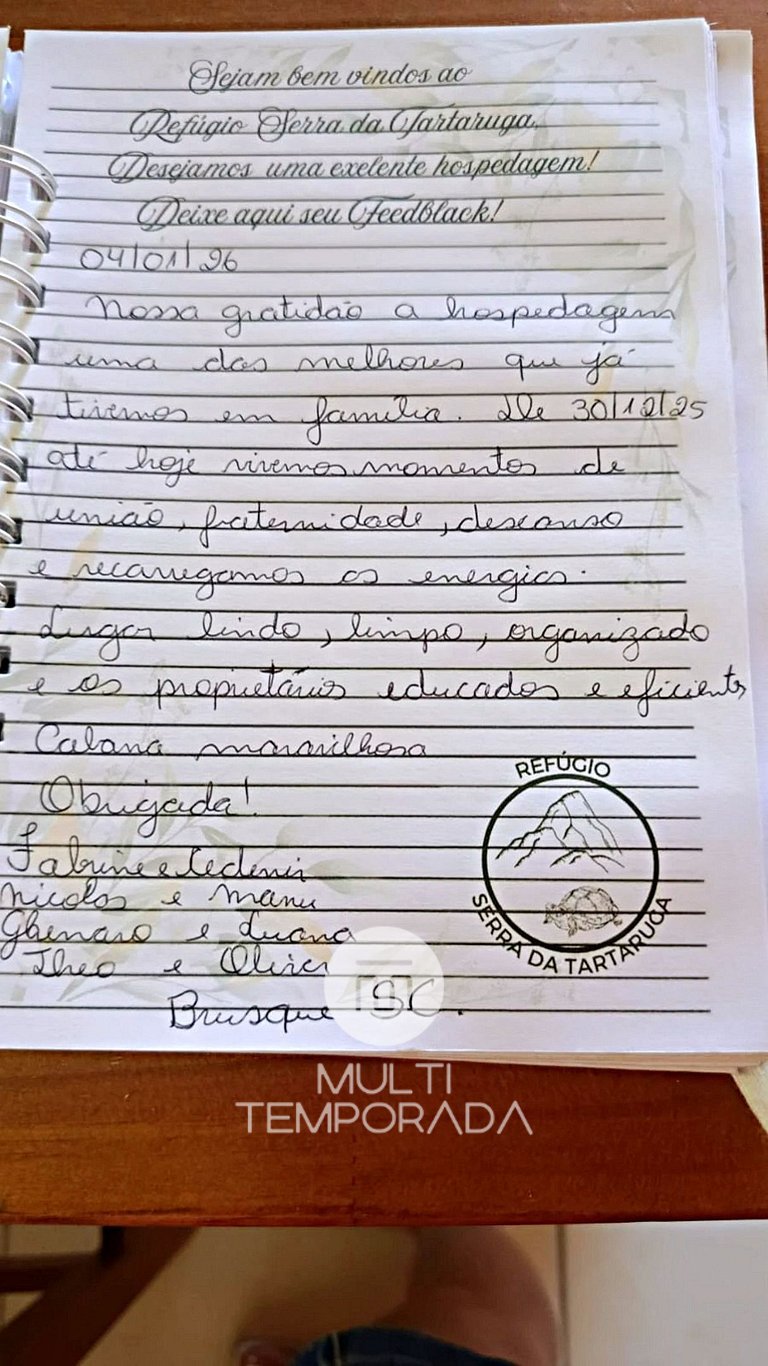 Sejam bem vindos ao
Refúgio Serra da Tartaruga.
Desejamos uma exelente hospedagem!
Deixe aqui seu Feedblack!
04/01/26
Nossa gratidão a hospedagem
uma das melhores que já
tivemos em família. De 30/12/25
até hoje vivemos momentos de
união, fraternidade, descanso
e recarregamos as energias.
Lugar lindo, limpo, organizado
e os proprietários educados e eficientes
Cabana maravilhosa
Obrigada!
Fabrine e
Nicolas e Manu
e Luana
Theo e
Brusque SC.
REFÚGIO
SERRA DA TARTARUGA
MULTI
TEMPORADA